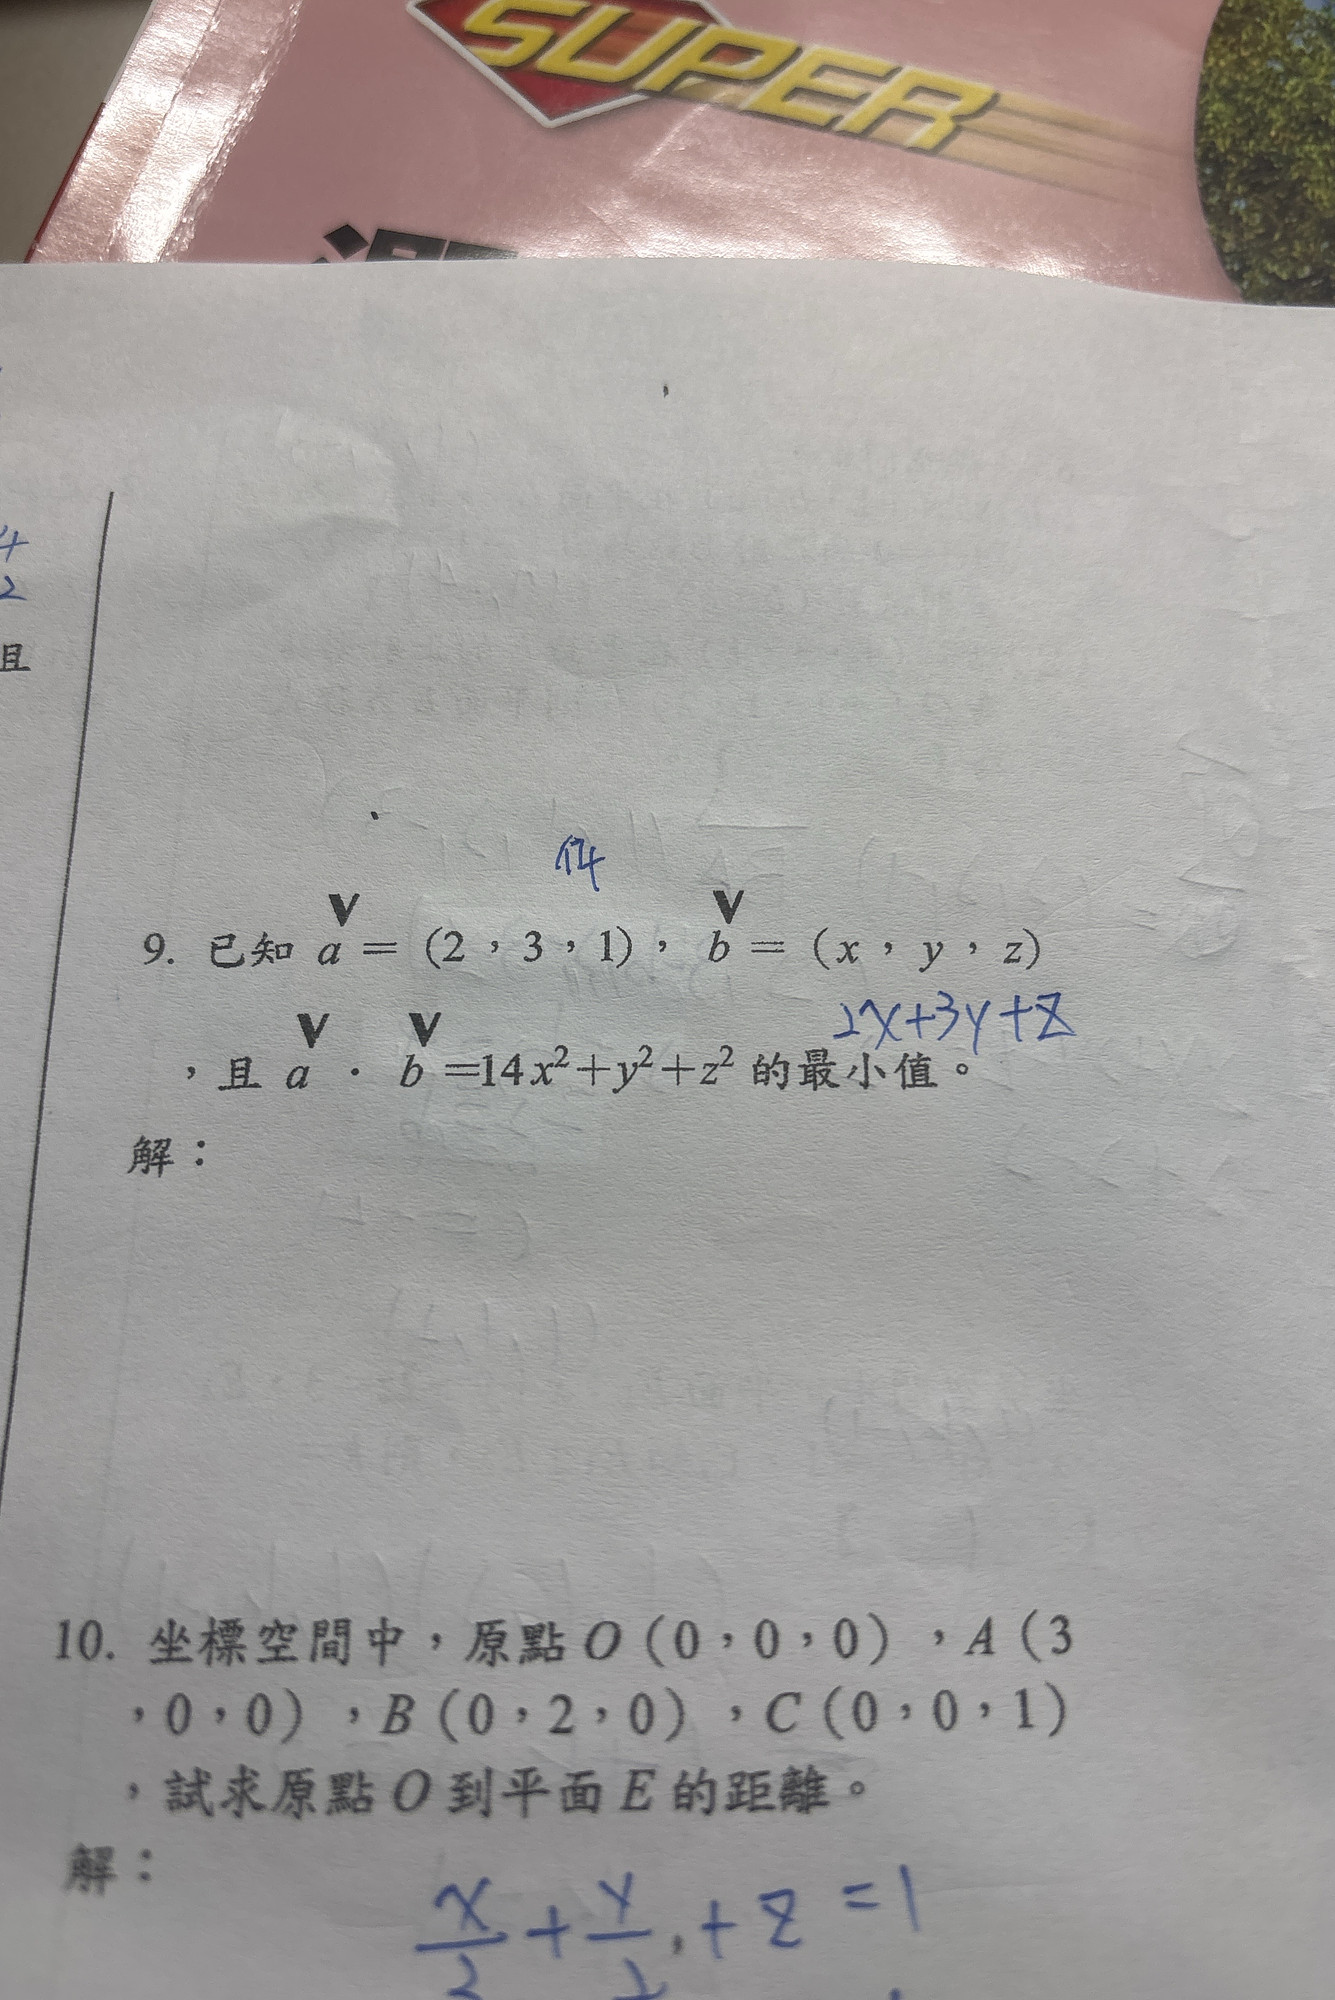 SUPER
4
2
且
14
9. 已知 a = (2，3，1)，b = (x，y，z)
2x+3y+z
，且 a · b =14x²+y²+z² 的最小值。
解：
10. 坐標空間中，原點 O (0，0，0)，A (3
，0，0)，B (0，2，0)，C (0，0，1)
，試求原點 O 到平面 E 的距離。
解：
x/3 + y/2 + z = 1